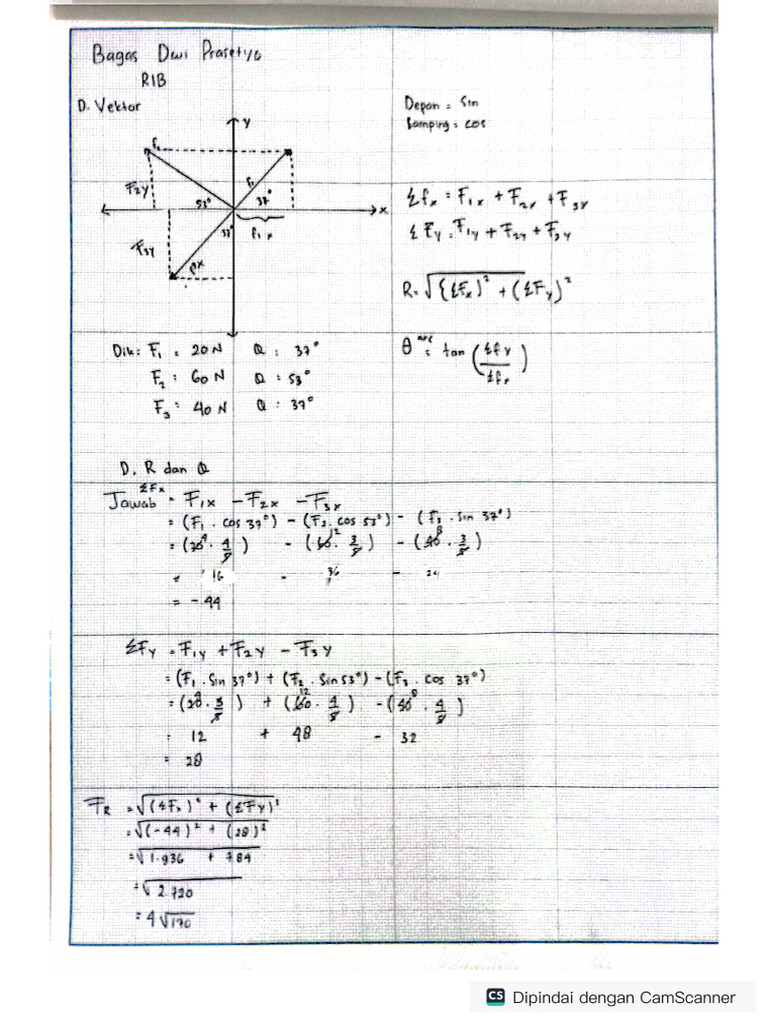 Bagas Dwi Prasetyo
RIB
D. Vektor
Y
F₂
F₁
F₂y
53°
37°
x
F₁x
37°
F₃y
Depan = Sin
Samping = cos
Σfx = F₁x + F₂x + F₃x
ΣFy = F₁y + F₂y + F₃y
R = √(ΣFx)² + (ΣFy)²
θ = arc tan (Σfy / Σfx)
Dik: F₁ = 20 N Q : 37°
F₂ : 60 N Q = 53°
F₃ : 40 N Q : 37°
D. R dan Q
Jawab ΣFx = F₁x - F₂x - F₃x
= (F₁ . cos 37°) - (F₂ . cos 53°) - (F₃ . Sin 37°)
= (20 4 . 4/5) - (60 12 . 3/5) - (40 8 . 3/5)
= 16 - 36 - 24
= -44
ΣFy = F₁y + F₂y - F₃y
= (F₁ . Sin 37°) + (F₂ . Sin 53°) - (F₃ . cos 37°)
= (20 4 . 3/5) + (60 12 . 4/5) - (40 8 . 4/5)
= 12 + 48 - 32
= 28
FR = √(ΣFx)² + (ΣFy)²
= √(-44)² + (28)²
= √1.936 + 784
= √2.720
= 4√170
CS Dipindai dengan CamScanner